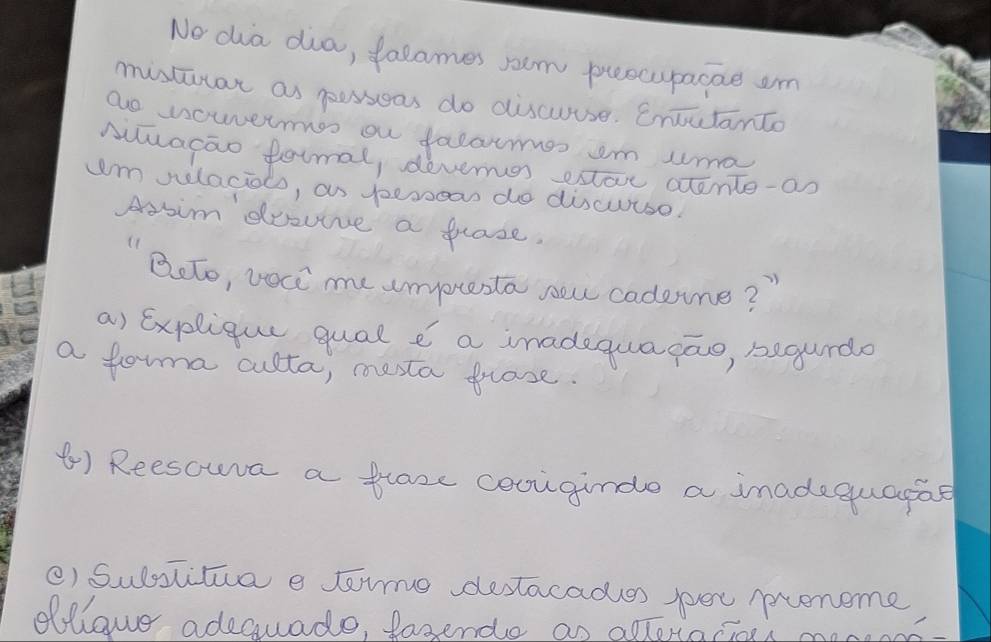 No dia dia, falamos sem preocupação em
misturar as pessoas do discurso. Entretanto
ao escrevermos ou falarmos em uma
situação formal, devemos estar atento-as
em relações, as pessoas do discurso.
Assim observe a frase.
"Beto, você me empresta seu caderno?"
a) Explique qual é a inadequação, segundo
a forma culta, nesta frase.
b) Reescreva a frase corrigindo a inadequação
c) Substitua o termo destacados por pronome
oblíquo adequado, fazendo as alterações